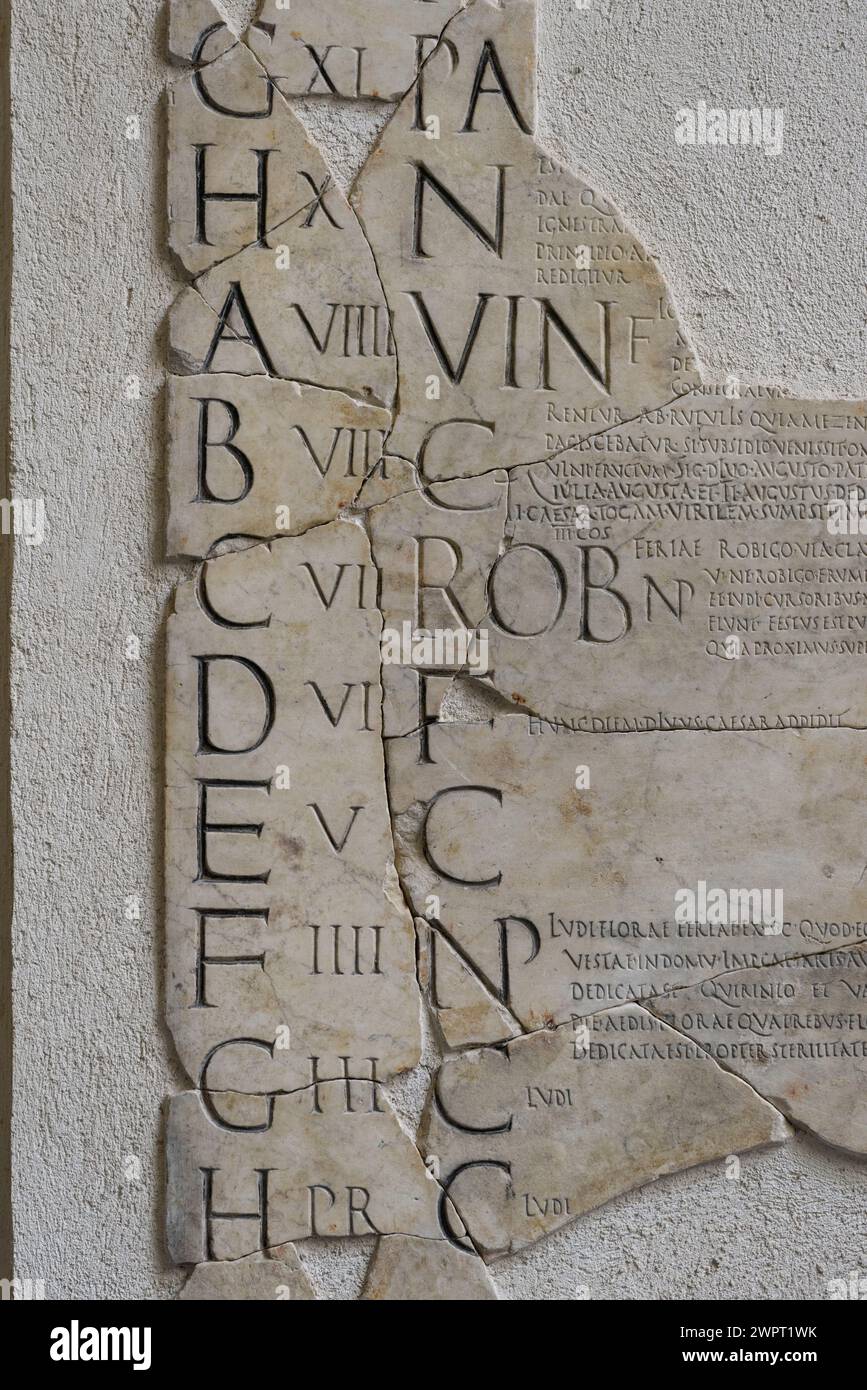 G XI PA
H X N
DAE QV
IGNE STRA
PRINCIPIO A
REDIGITVR
A VIIII VIN F
DE
CONSECRATVR
B VIII C
RENTVR · AB · RVTVLIS QVIA MEZEN
PACISCEBATVR · SI SVBSIDIO VENISSET OM
VINI FRVCTVM · SIG · DIVO · AVGVSTO · PAT
IVLIA · AVGVSTA · ET · TI · AVGVSTVS DED
I · CAESAR · TOGAM · VIRILEM SVMPSIT
III COS
C VII ROB NP FERIAE ROBIGO · VIA CLA
NE · ROBIGO · FRVM
ET LVDI · CVRSORIBVS
FIVNT · FESTVS EST PV
QVIA PROXIMVS · SVP
D VI F
HVNC DIEM · DIVVS · CAESAR ADDIDIT
E V C
F IIII NP LVDI FLORAE FERIAE EX SC · QVOD E
VESTAE IN DOMV · IMP CAESARIS AV
DEDICATAST · QVIRINIO ET VA
DIE AEDIS FLORAE QVAE REBVS FL
DEDICATA EST PROPTER STERILITATE
G III C LVDI
H PR C LVDI
alamy
Image ID: 2WPT1WK
www.alamy.com